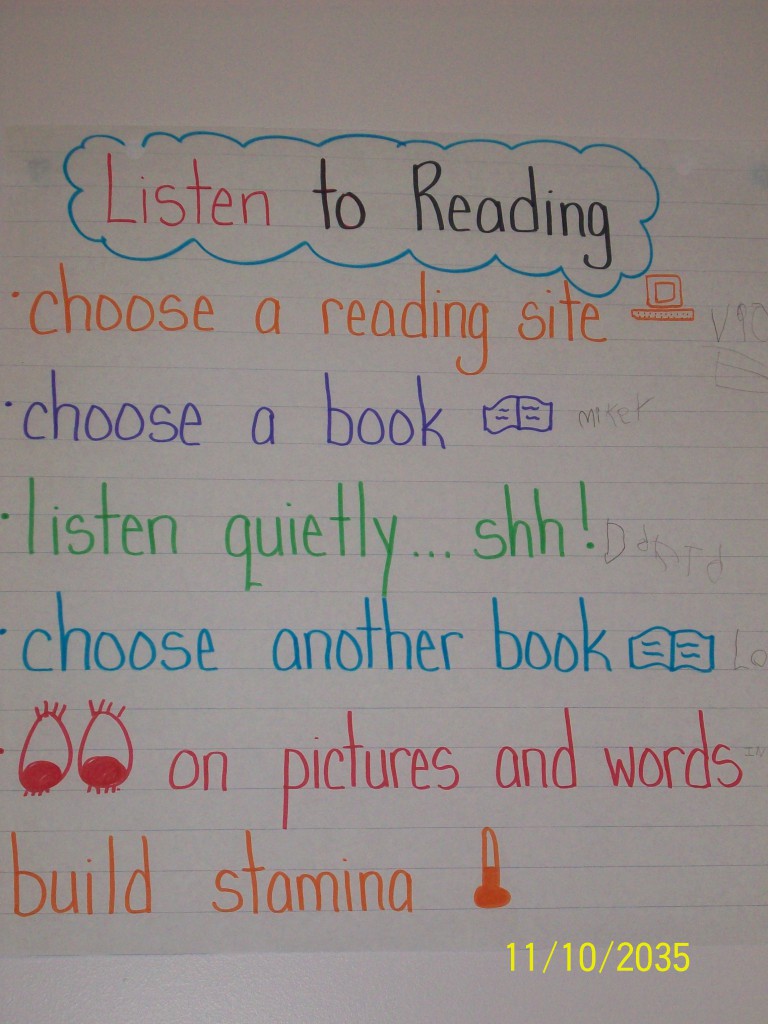 Listen to Reading
· choose a reading site
· choose a book
· listen quietly... shh!
· choose another book
· on pictures and words
build stamina
11/10/2035